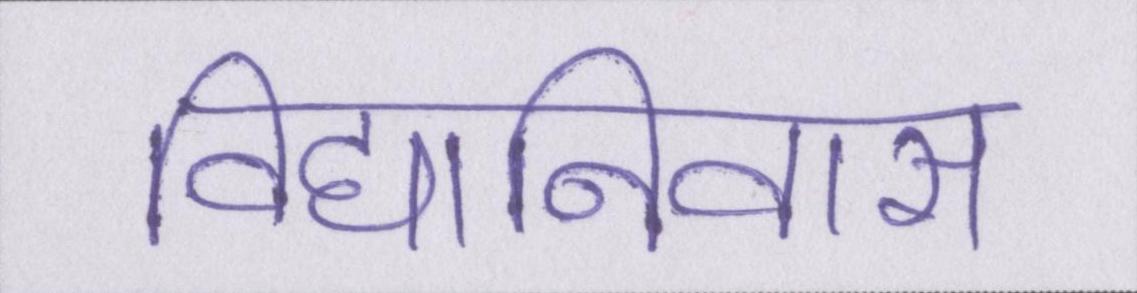 विद्यानिवास